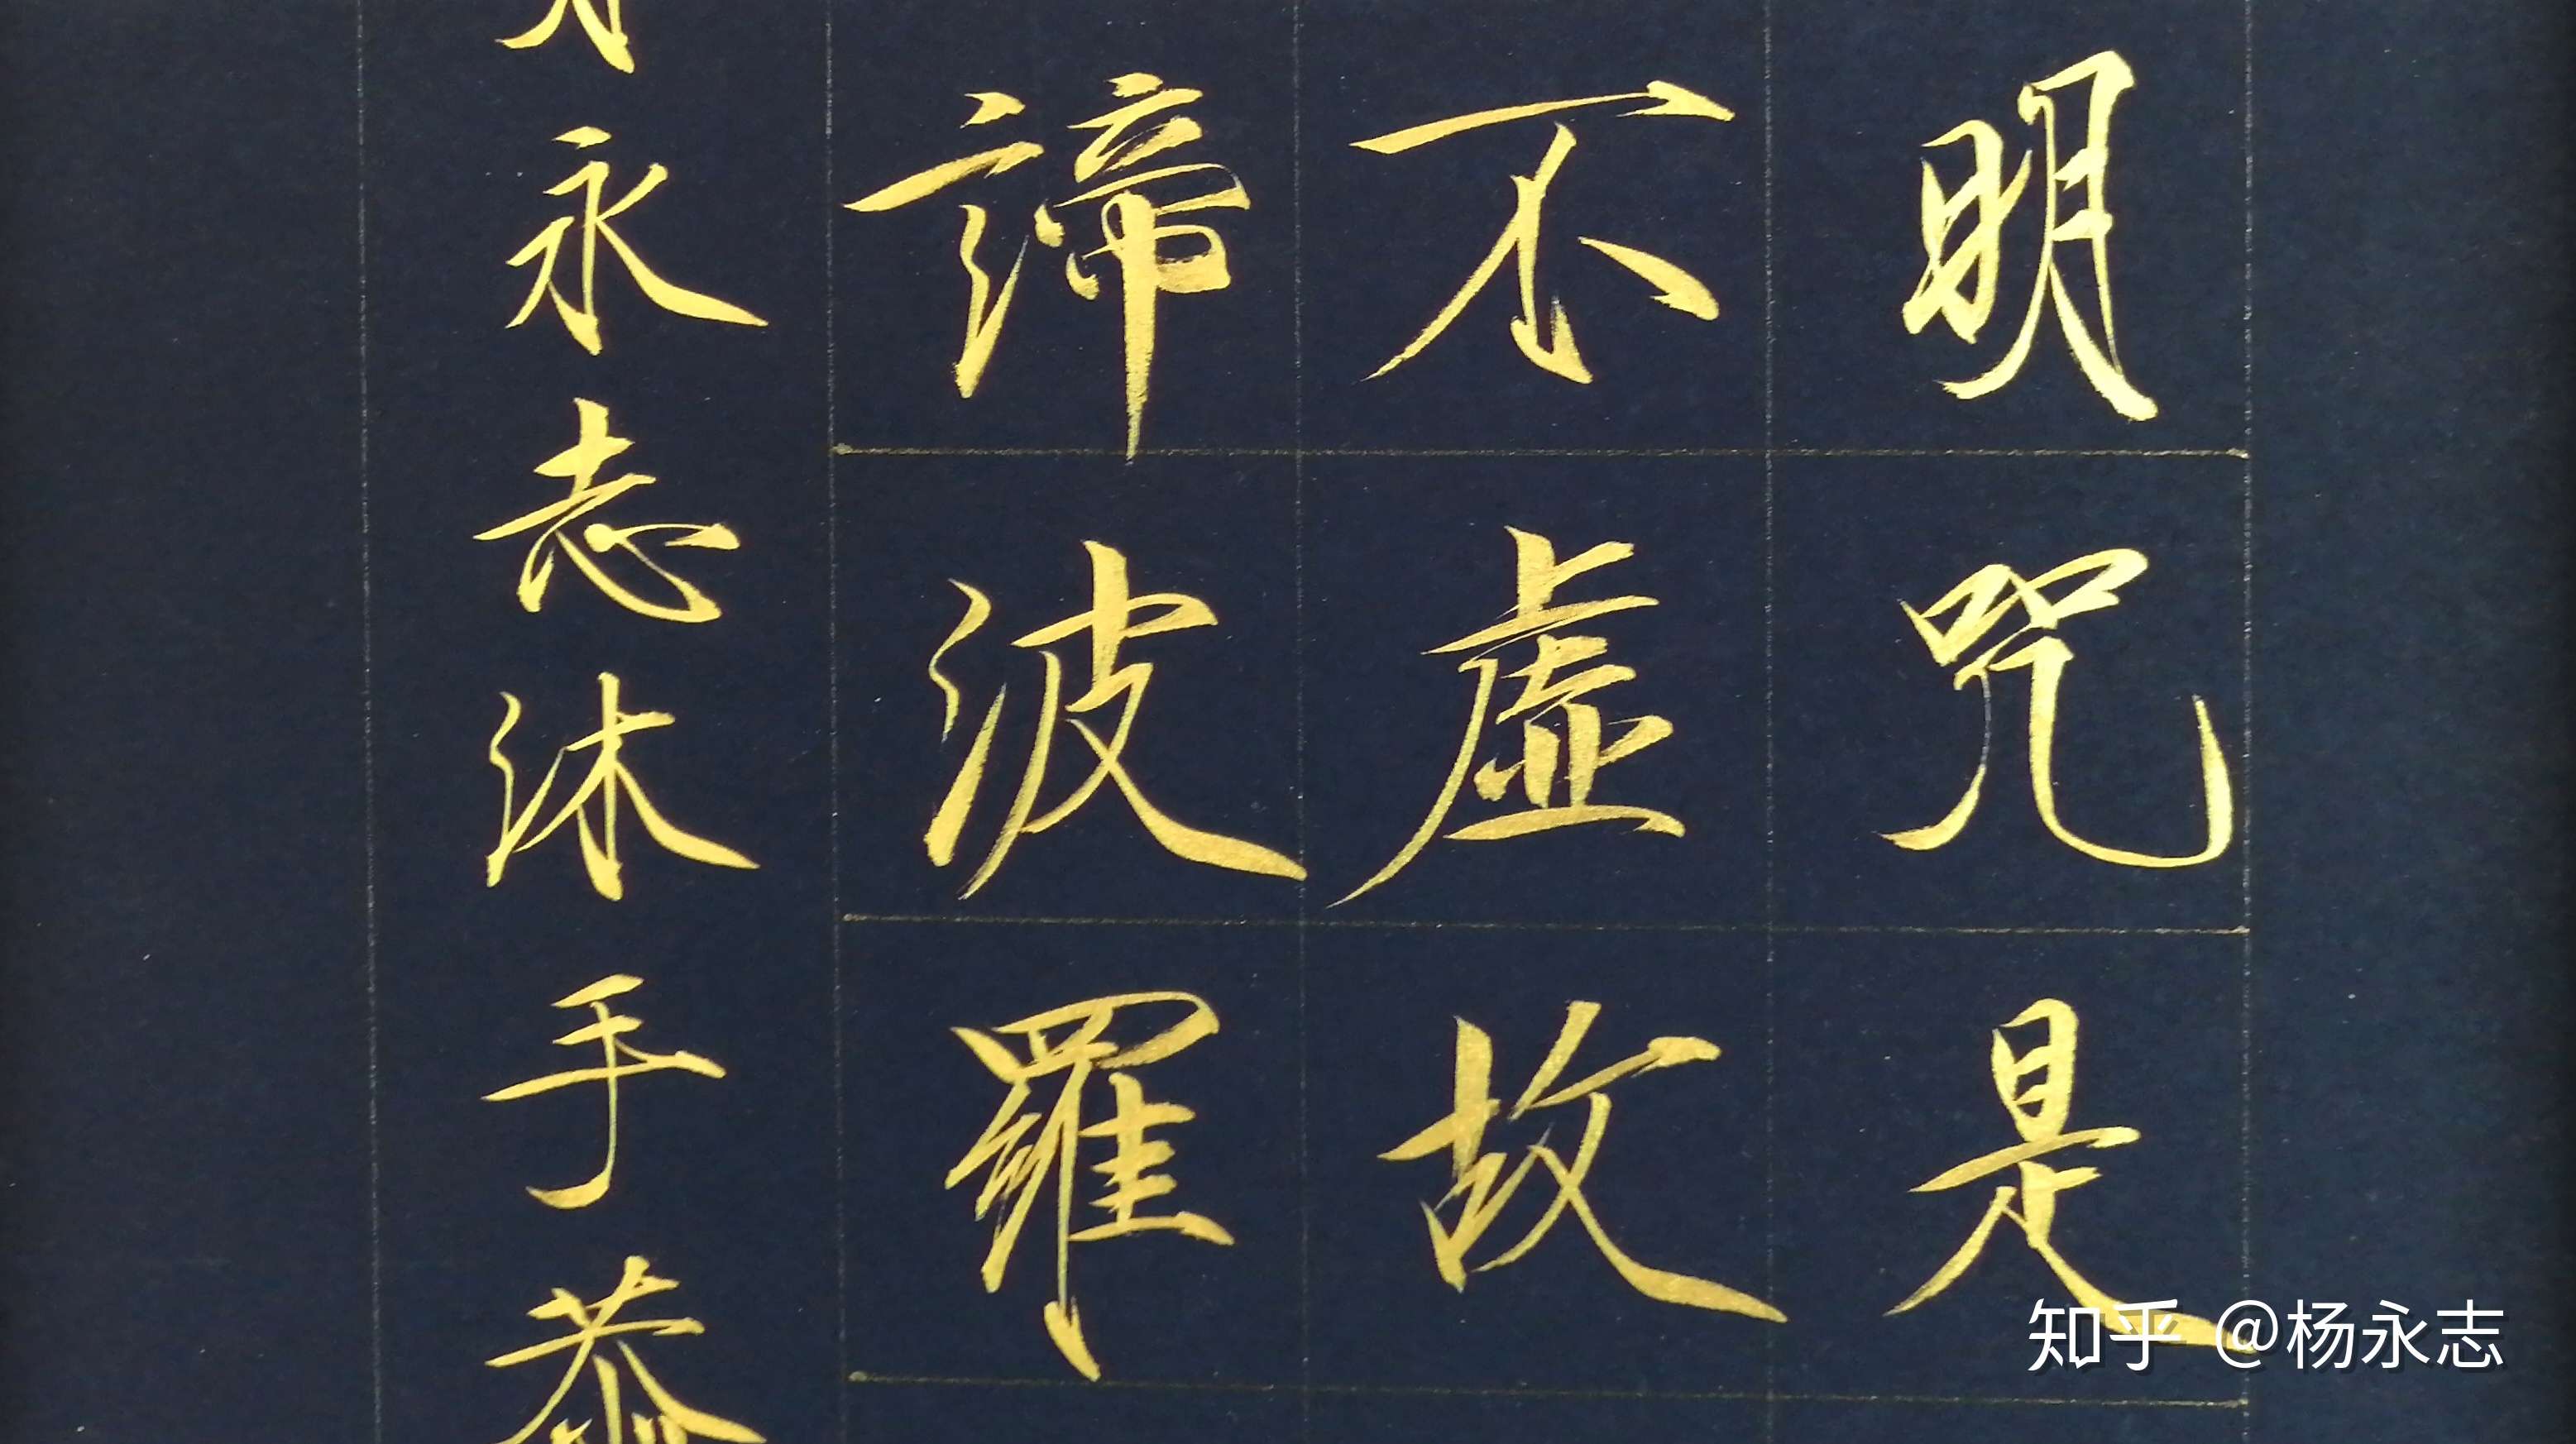 明咒是
不虛故
諦波羅
永志沐手恭
知乎 @杨永志